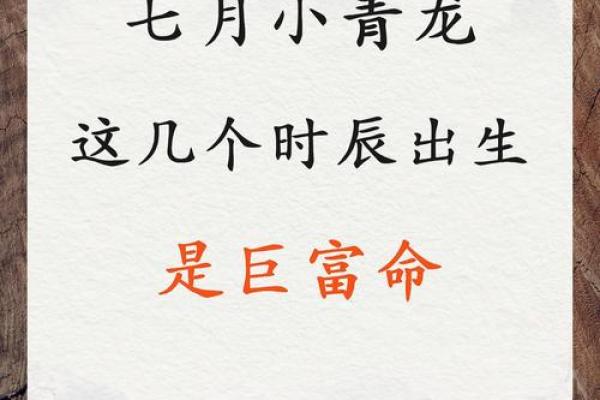 七月小青龙
这几个时辰出生
是巨富命